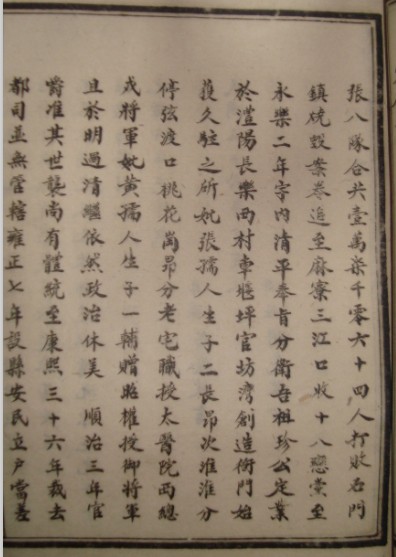 張八隊合共壹萬柒千零六十四人打敗石門
鎮硫毀案卷追至麻寮三江口收十八戀黨至
永樂二年宇內清平奉旨分衛吾祖珍公定業
於澧陽長樂西村車堰坪官坊灣創造衙門始
獲久駐之所妣張孺人生子二長昂次淮淮分
停弦渡口桃花崗昂分老宅職授太醫院西總
戎將軍妣黃孺人生子一輔贈昭權授御將軍
且於明過清繼依然政治休美順治三年官
爵准其世襲尚有體統至康熙三十六年裁去
都司並無管轄雍正七年設縣安民立戶當差